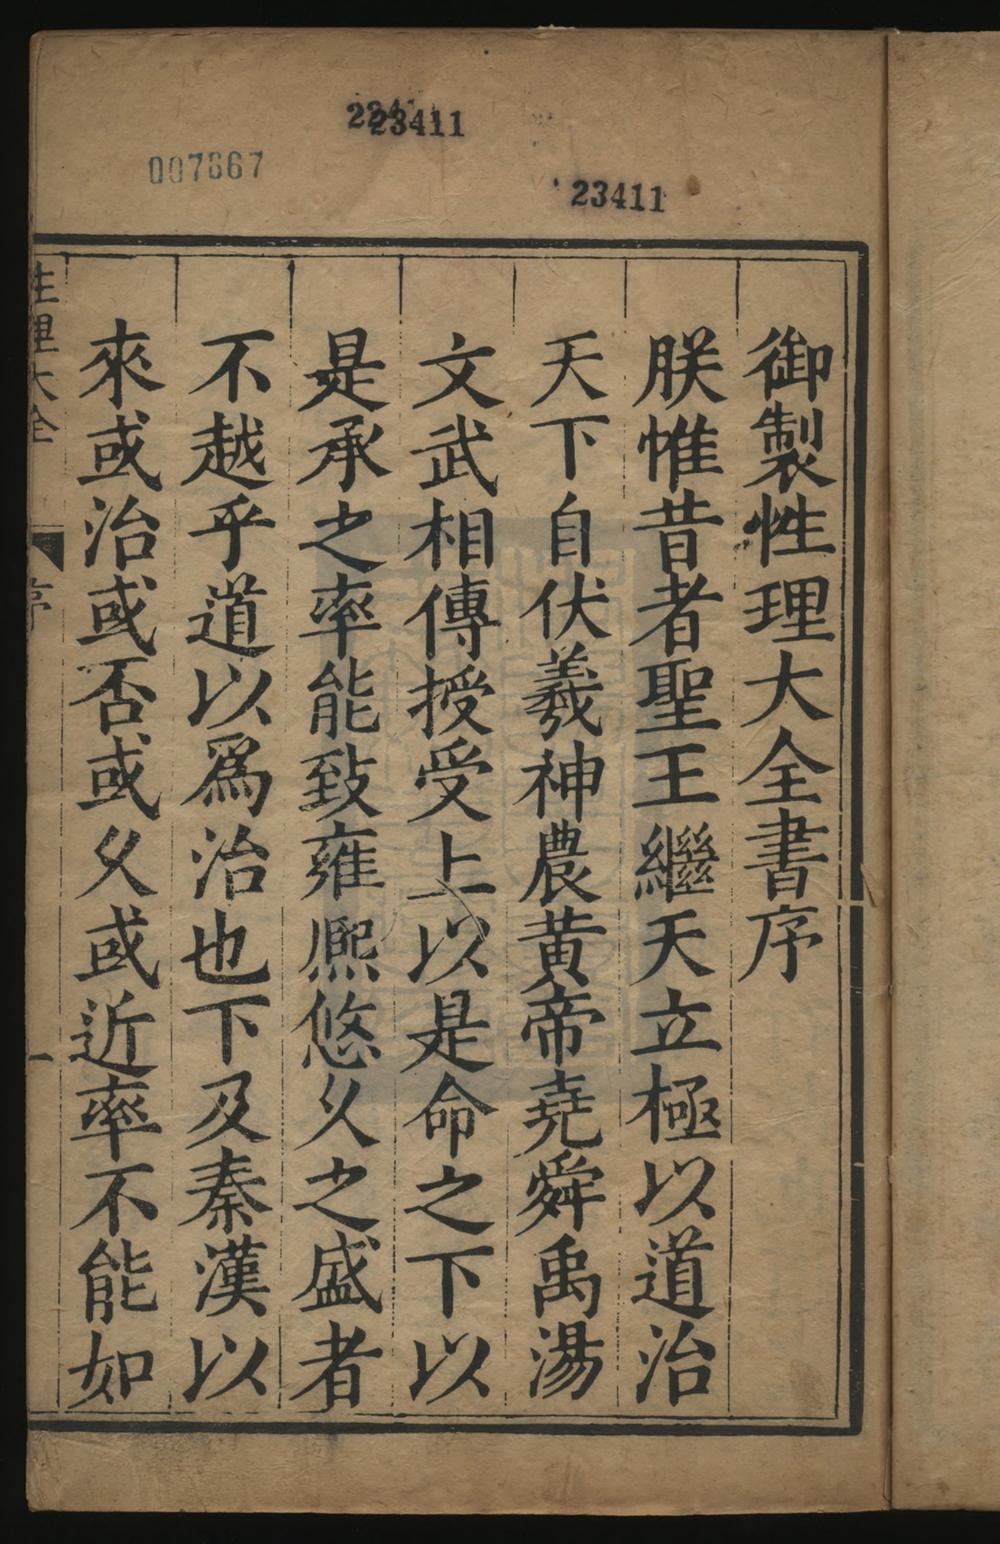 23411
007667
23411
御製性理大全書序
朕惟昔者聖王繼天立極以道治
天下自伏羲神農黃帝堯舜禹湯
文武相傳授受上以是命之下以
是承之率能致雍熙悠久之盛者
不越乎道以爲治也下及秦漢以
來或治或否或久或近率不能如
性理大全
序
一